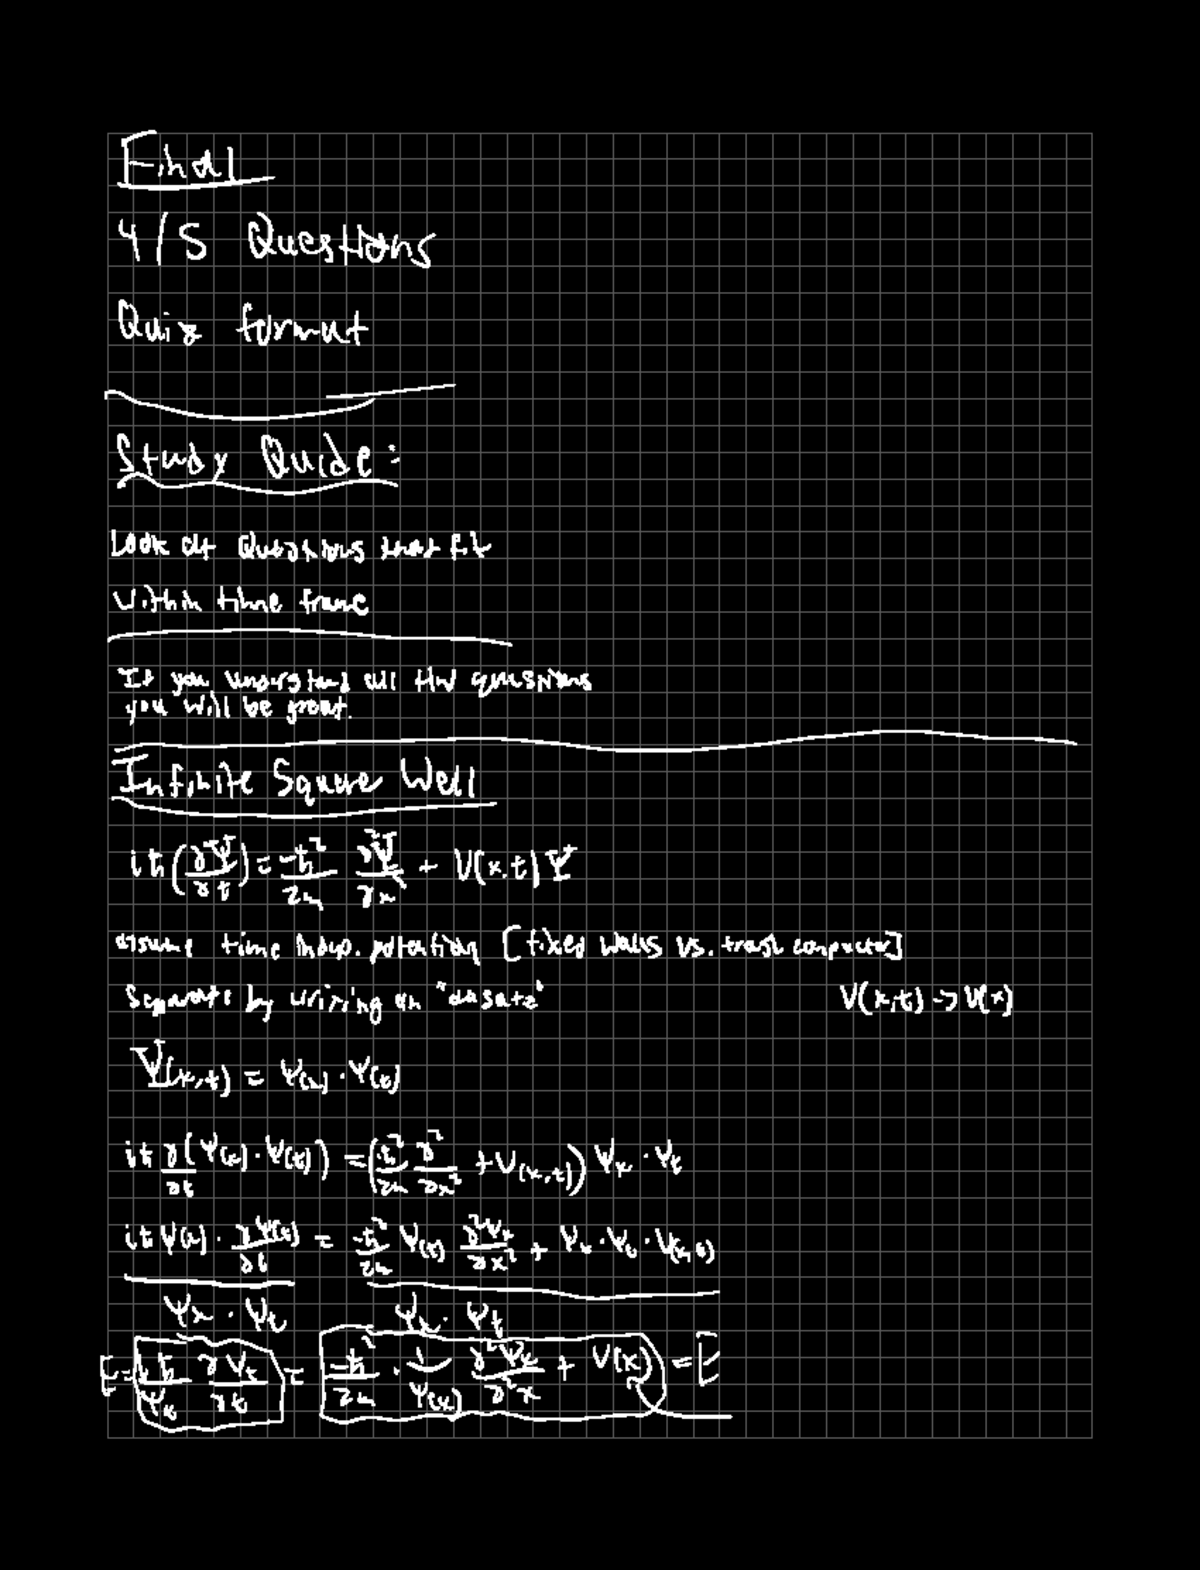 Final
4/5 Questions
Quiz format
Study Quide:
Look at Questions that fit
within time frame
If you understand all HW questions
you will be great.
Infinite Square Well
iħ(∂Ψ/∂t) = -ħ²/2m ∂²Ψ/∂x² + V(x,t)Ψ
assume time indep. potential [fixed walls vs. trash compactor]
Separate by writing an "ansatz" V(x,t) -> V(x)
Ψ(x,t) = ψ(x) · ψ(t)
iħ ∂(ψ(x) · ψ(t))/∂t = (-ħ²/2m ∂²/∂x² + V(x,t)) ψx · ψt
iħ ψ(x) · ∂ψ(t)/∂t = -ħ²/2m ψ(t) ∂²ψx/∂x² + ψx · ψt · V(x,t)
ψx · ψt ψx · ψt
E = iħ/ψt ∂ψt/∂t = -ħ²/2m · 1/ψ(x) ∂²ψx/∂²x + V(x) = E